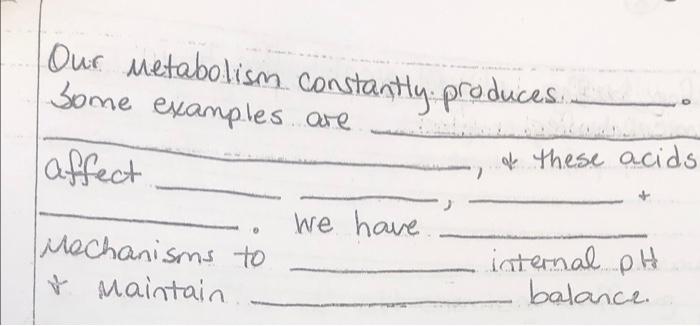 Our Metabolism constantly produces ______.
Some examples are ______
______, & these acids
affect ______ ______, ______ +
______. We have ______
Mechanisms to ______ internal pH
& Maintain ______ balance.